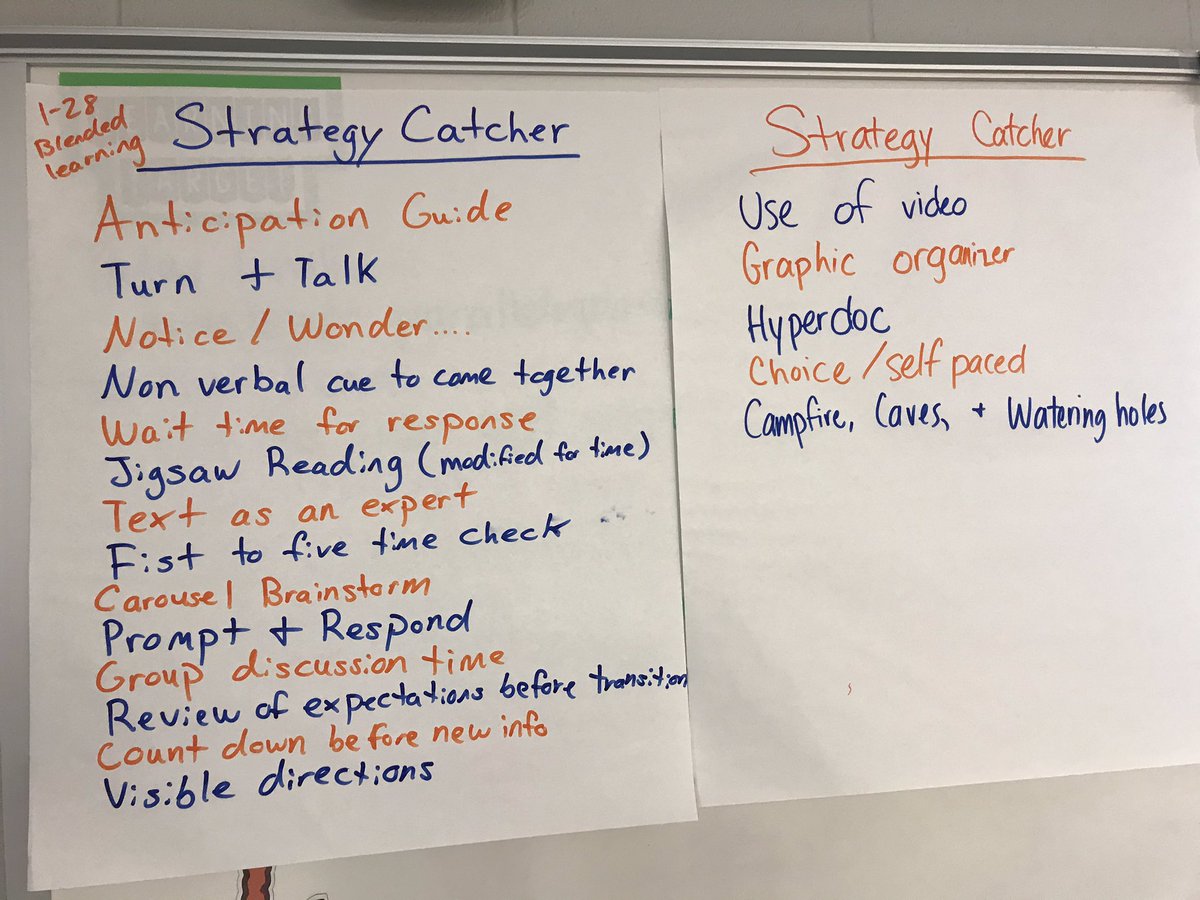 1-28
Blended
learning
Strategy Catcher
Anticipation Guide
Turn + Talk
Notice / Wonder....
Non verbal cue to come together
Wait time for response
Jigsaw Reading (modified for time)
Text as an expert
Fist to five time check
Carousel Brainstorm
Prompt + Respond
Group discussion time
Review of expectations before transition
Count down before new info
Visible directions
Strategy Catcher
Use of video
Graphic organizer
Hyperdoc
Choice / self paced
Campfire, Caves, + Watering holes